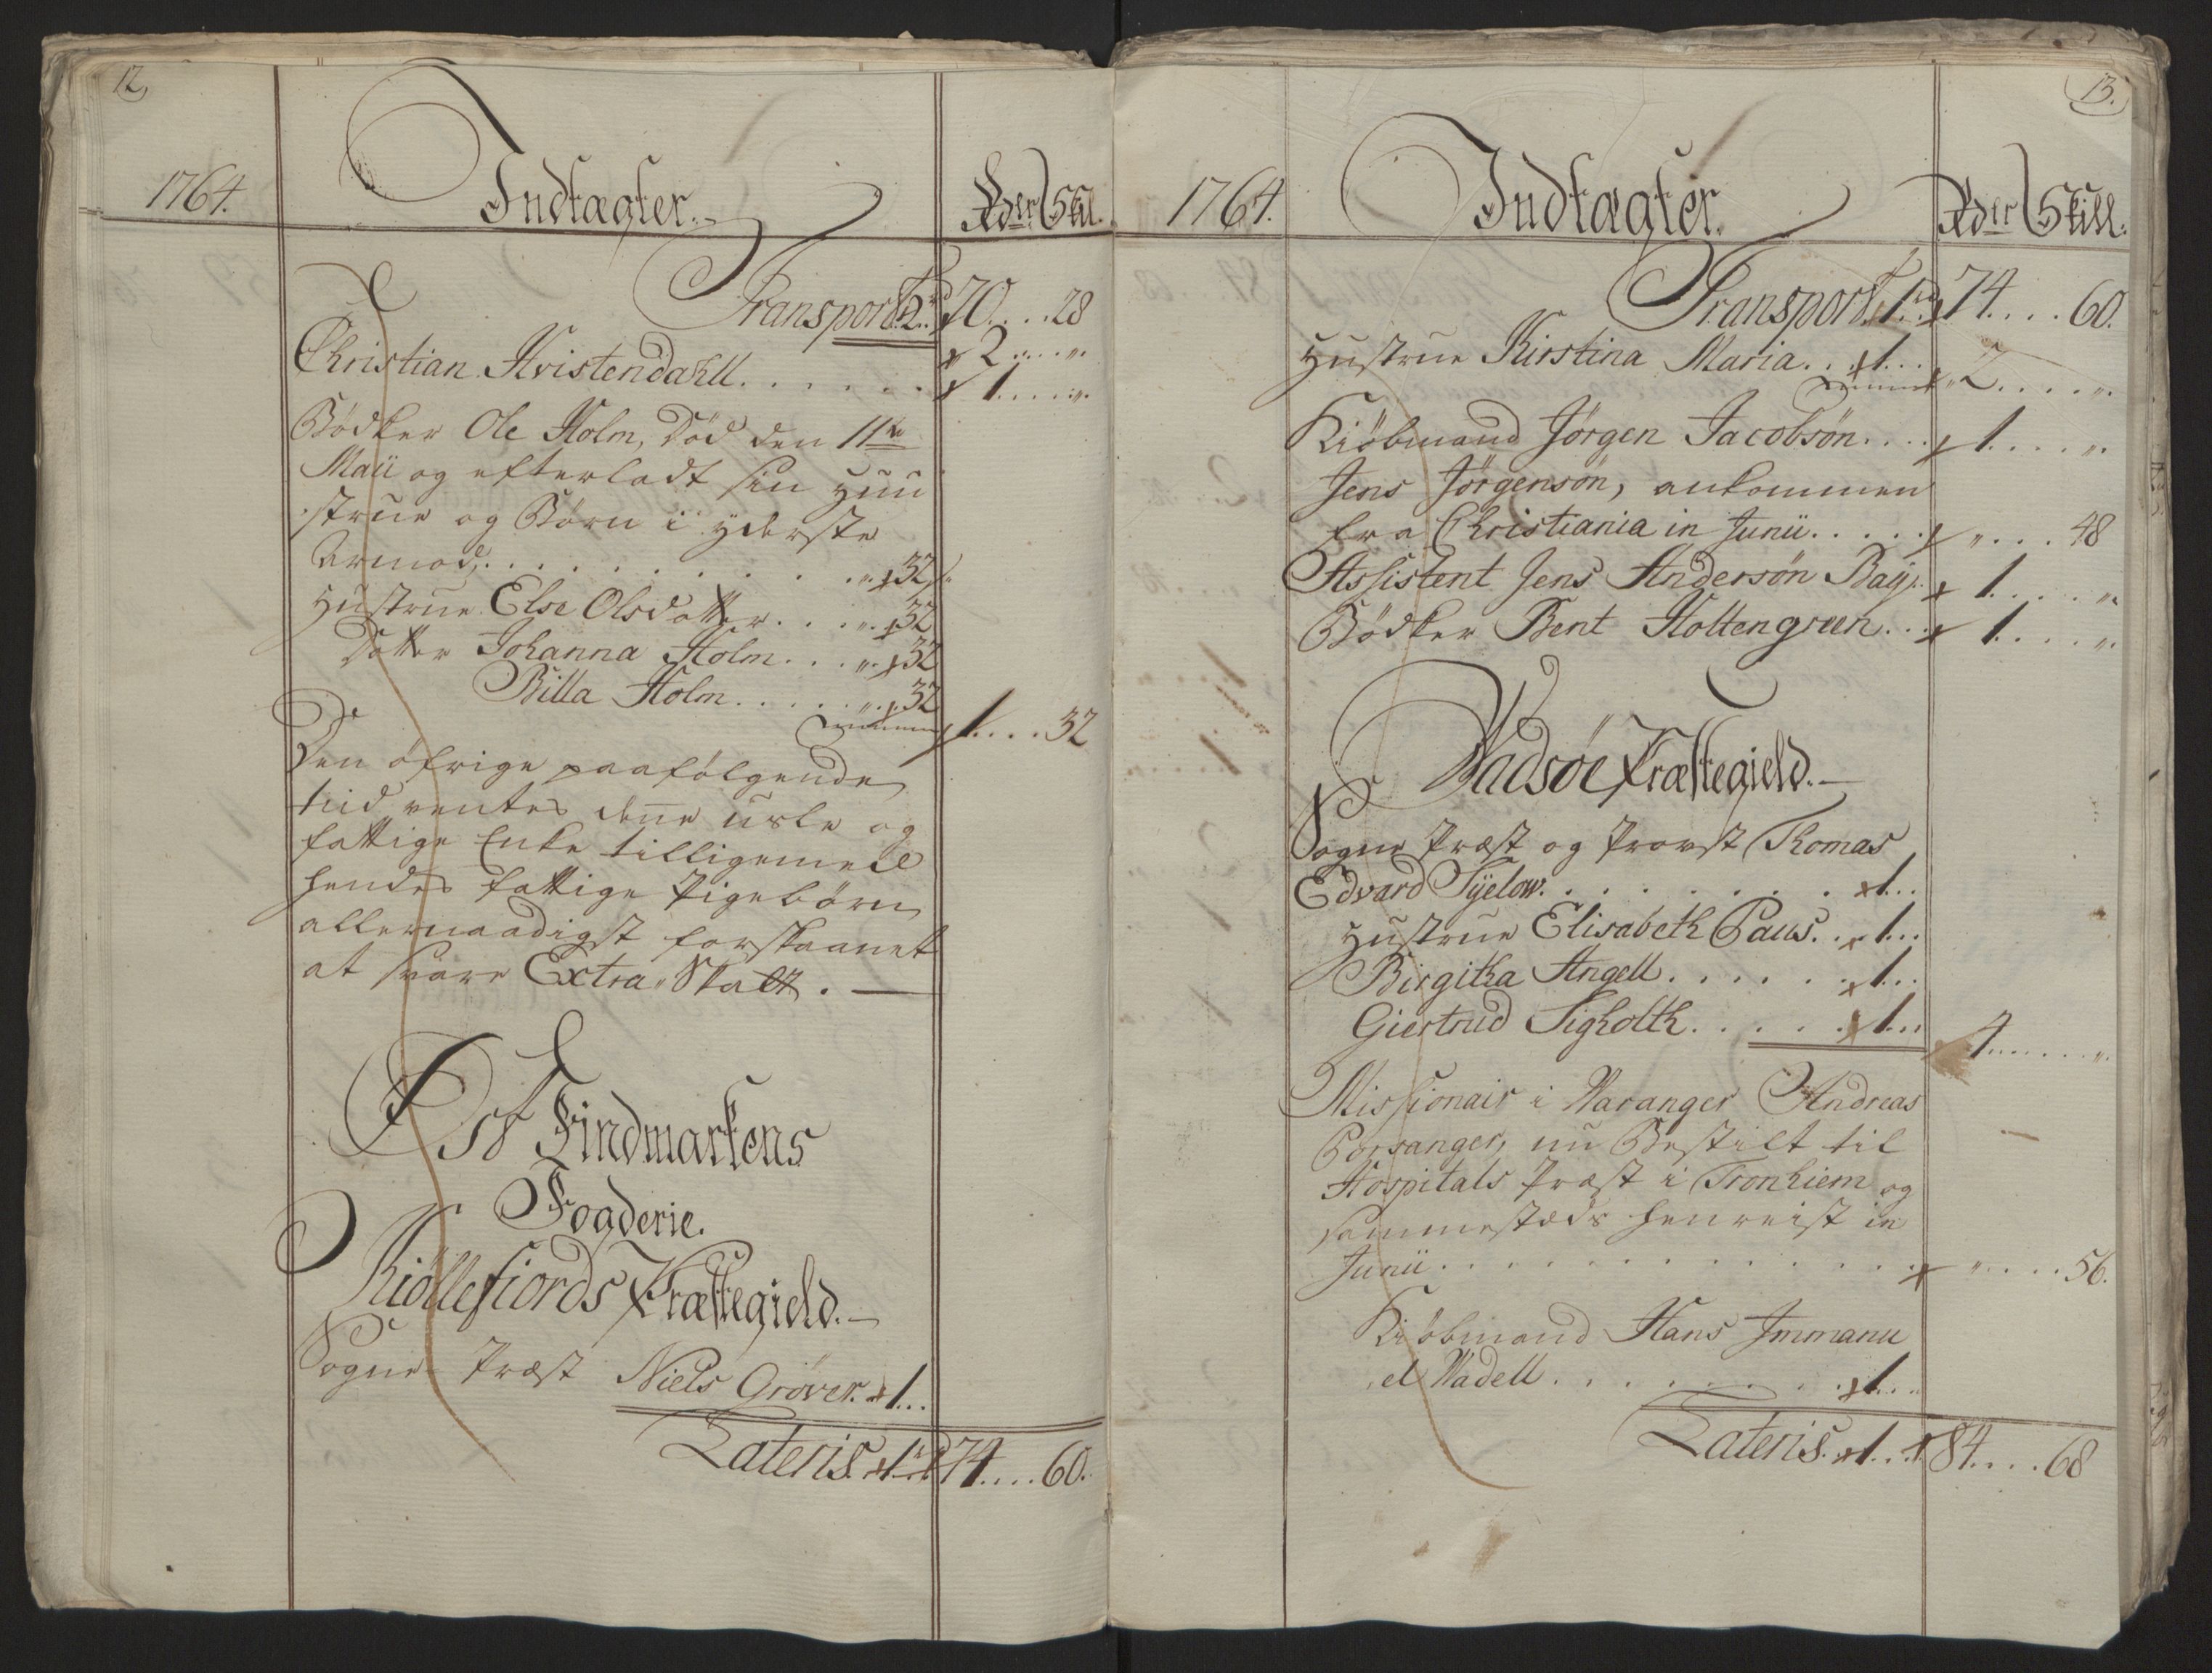 12,
1764.
Indtægter.
Rdlr Skil.
Transport 2 rd 70....28
2....„.
Christian Kvistendahll...... 1....„.
Bödker Ole Holm, död den 11te
Maii og efterladt sin Huu
strue og Börn i yderste
Armod,........„.32
Hustrue Else Olsdatter....„.32
Datter Johanna Holm...„.32
Billa Holm......„.32
1....32
Den öfrige paafölgende
tiid ventes denne usle og
fattige Enke tilligemed
hendes fattige Pigebörn
allernaadigst forskaanet
at svare Extra-Skatt. —
Ost Findmarkens
Fogderie.
Kiöllefiords Præstegield. —
Sogne-Præst Niels Gröver. 1...
Lateris. 1 rd 74....60.
13.
1764.
Indtægter.
Rdlr Skill.
Transport. 1 rd 74....60.
Hustrue Kirstina Maria... 1...
2....„.
Kiöbmand Jörgen Jacobsön.... 1....„.
Jens Jörgensön, ankommen
fra Christiania in Junii..... „...48
Assistent Jens Andersön Bay. 1....„.
Bödker Bent Holtengreen... 1....„.
Vadsöe Præstegield. —
Sogne Præst og Provst Thomas
Edvard Syelow......... 1...
Hustrue Elisabeth Paus.. 1...
Birgitha Angell...... 1...
Giertrud Sigholth...... 1...
4......„.
Missionair i Varanger Andreas
Porsanger, nu Bestilt til
Hospitals Præst i Tronhiem og
sammestæds henreist in
Junii.............. „....56.
Kiöbmand Hans Immanu
el Wadell......... 1...
Lateris. 1... 84....68